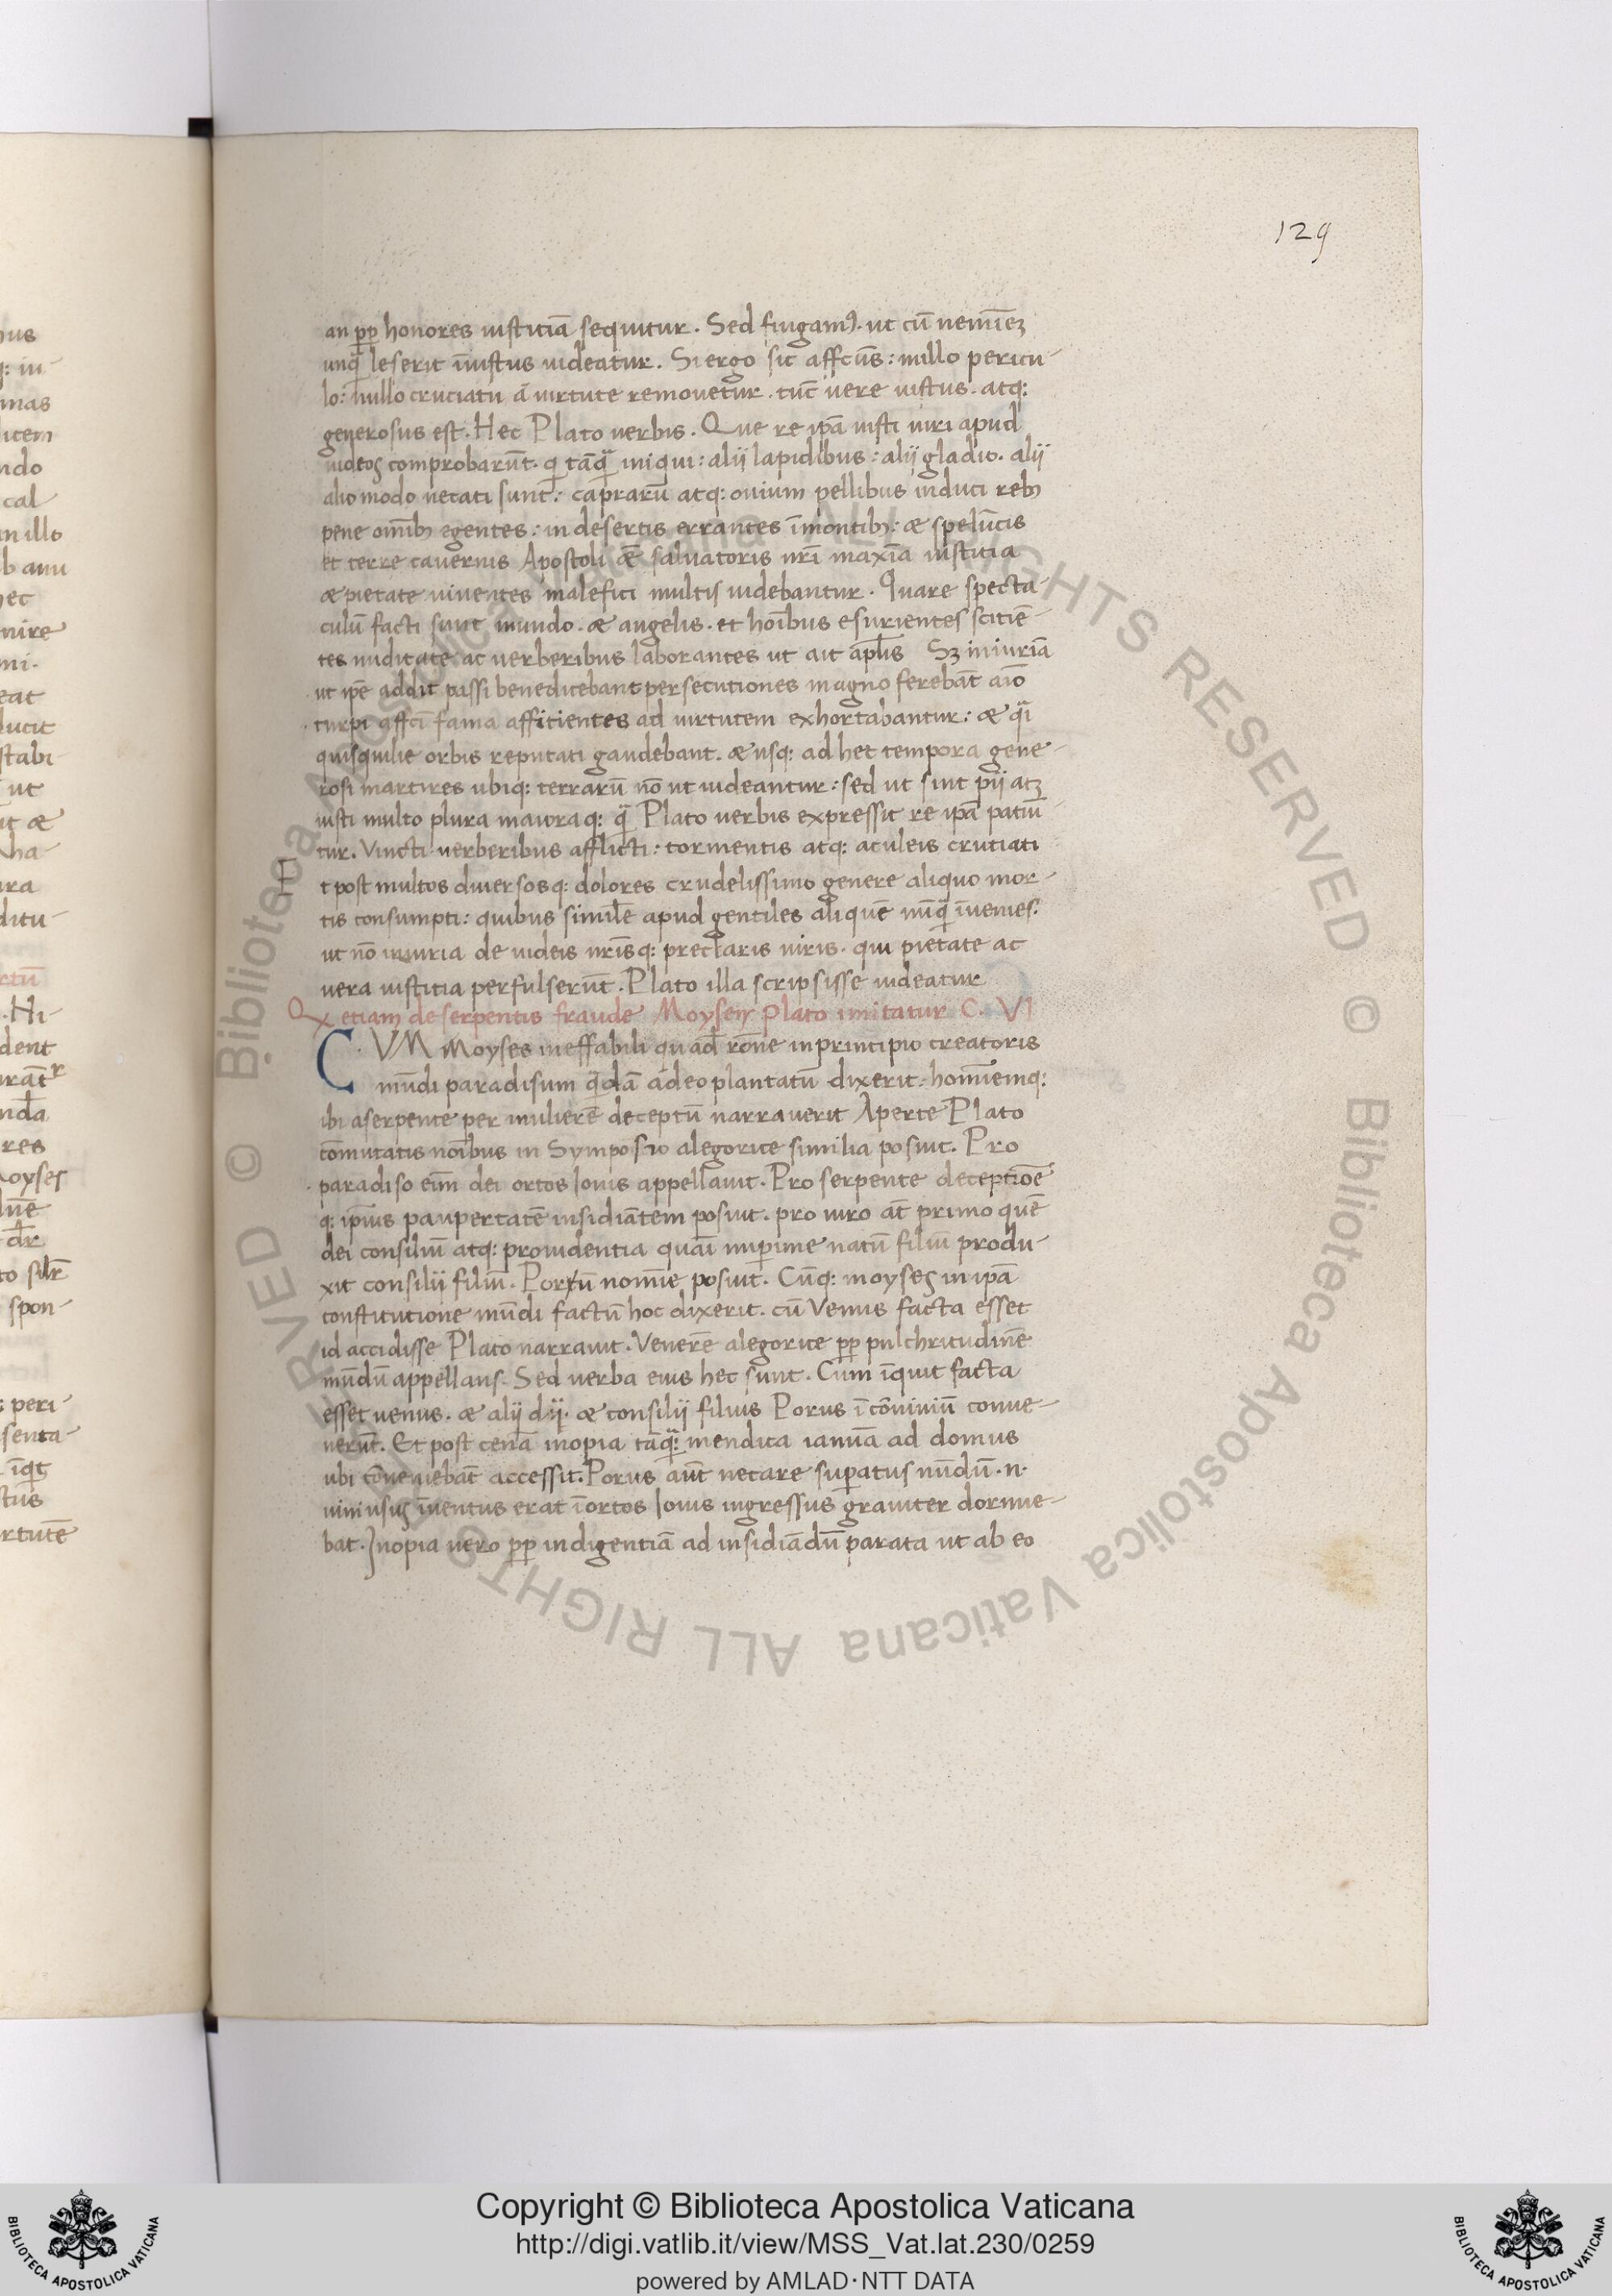 129
an ꝓp honores iusticiā sequitur. Sed fingamꝰ. ut cū nemīeꝫ
unq̄ leserit īiustus uideatur. Si ergo sic affcūs: nullo pericu-
lo: nullo cruciatu a uirtute remouetur. tūc uere iustus. atq:
generosus est. Hec Plato uerbis. Que re ipā iusti uiri apud
iudeos comprobarūt. q tāq̄ iniqui: alij lapidibus: alij gladio. alij
alio modo necati sunt: caprarū atq: ouium pellibus induti rebꝫ
pene omībꝫ egentes: in desertis errantes ī montibꝫ: æ spelūcis
et terre cauernis Apostoli æ saluatoris nrī maxīa iustitia
æ pietate uiuentes malefici multis uidebantur. Quare specta-
culū facti sunt mundo. æ angelis. et hoībus esurientes scitiē-
tes nuditate ac uerberibus laborantes ut ait apl̄s Sꝫ iniuriā
ut ipē addit passi benedicebant persecutiones magno ferebāt aīo
turpi affcī fama afficientes ad uirtutem exhortabantur: æ q̄i
quisquilie orbis reputati gaudebant. æ usq: ad hec tempora gene-
rosi martires ubiq: terrarū nō ut uideantur: sed ut sint pij atꝫ
iusti multo plura maioraq: q̄ Plato uerbis expressit re ipā patiū-
tur. Vincti uerberibus afflicti: tormentis atq: aculeis cruciati
E t post multos diuersosq: dolores crudelissimo genere aliquo mor-
tis consumpti: quibus similē apud gentiles aliquē nūq̄ īuenies:
ut nō iniuria de iudeis nrīsq: preclaris uiris. qui pietate ac
uera iustitia perfulserūt. Plato illa scripsisse uideatur
Qx etiam de serpentis fraude Moysen Plato imitatur C. VI
C VM Moyses ineffabili quad̄ rōne in principio creatoris
mūdi paradisum q̄dā a deo plantatū dixerit: hominemq:
ibi a serpente per mulierē deceptū narrauerit Aperte Plato
cōmutatis noībus in Symposio alegorice similia posuit. Pro
paradiso eīm dei ortos Iouis appellauit. Pro serpente deceptiōe
q: ipīus paupertatē insidiātem posuit. pro uiro āt primo quē
dei consiliū atq: prouidentia quāi nuperime natū filiū produ-
xit consilii filiū. Porū nomīe posuit. Cūq: moyses in ipā
constitutione mūdi factū hoc dixerit. cū Venus facta esset
id accidisse Plato narrauit. Venerē alegorice ꝓp pulchritudinē
mūdū appellans. Sed uerba eius hec sunt. Cum īquit facta
esset uenus. æ alij dij. æ consilij filius Porus ī cōuiuiū conue-
nerūt. Et post cenā inopia tāq̄: mendica ianuā ad domus
ubi cōueniebāt accessit. Porus aūt nectare superatus nūdū .n.
uini usus īuentus erat ī ortos Iouis ingressus grauiter dormie-
bat. Inopia uero ꝓp indigentiā ad insidiādū parata ut ab eo
Copyright © Biblioteca Apostolica Vaticana
http://digi.vatlib.it/view/MSS_Vat.lat.230/0259
powered by AMLAD·NTT DATA